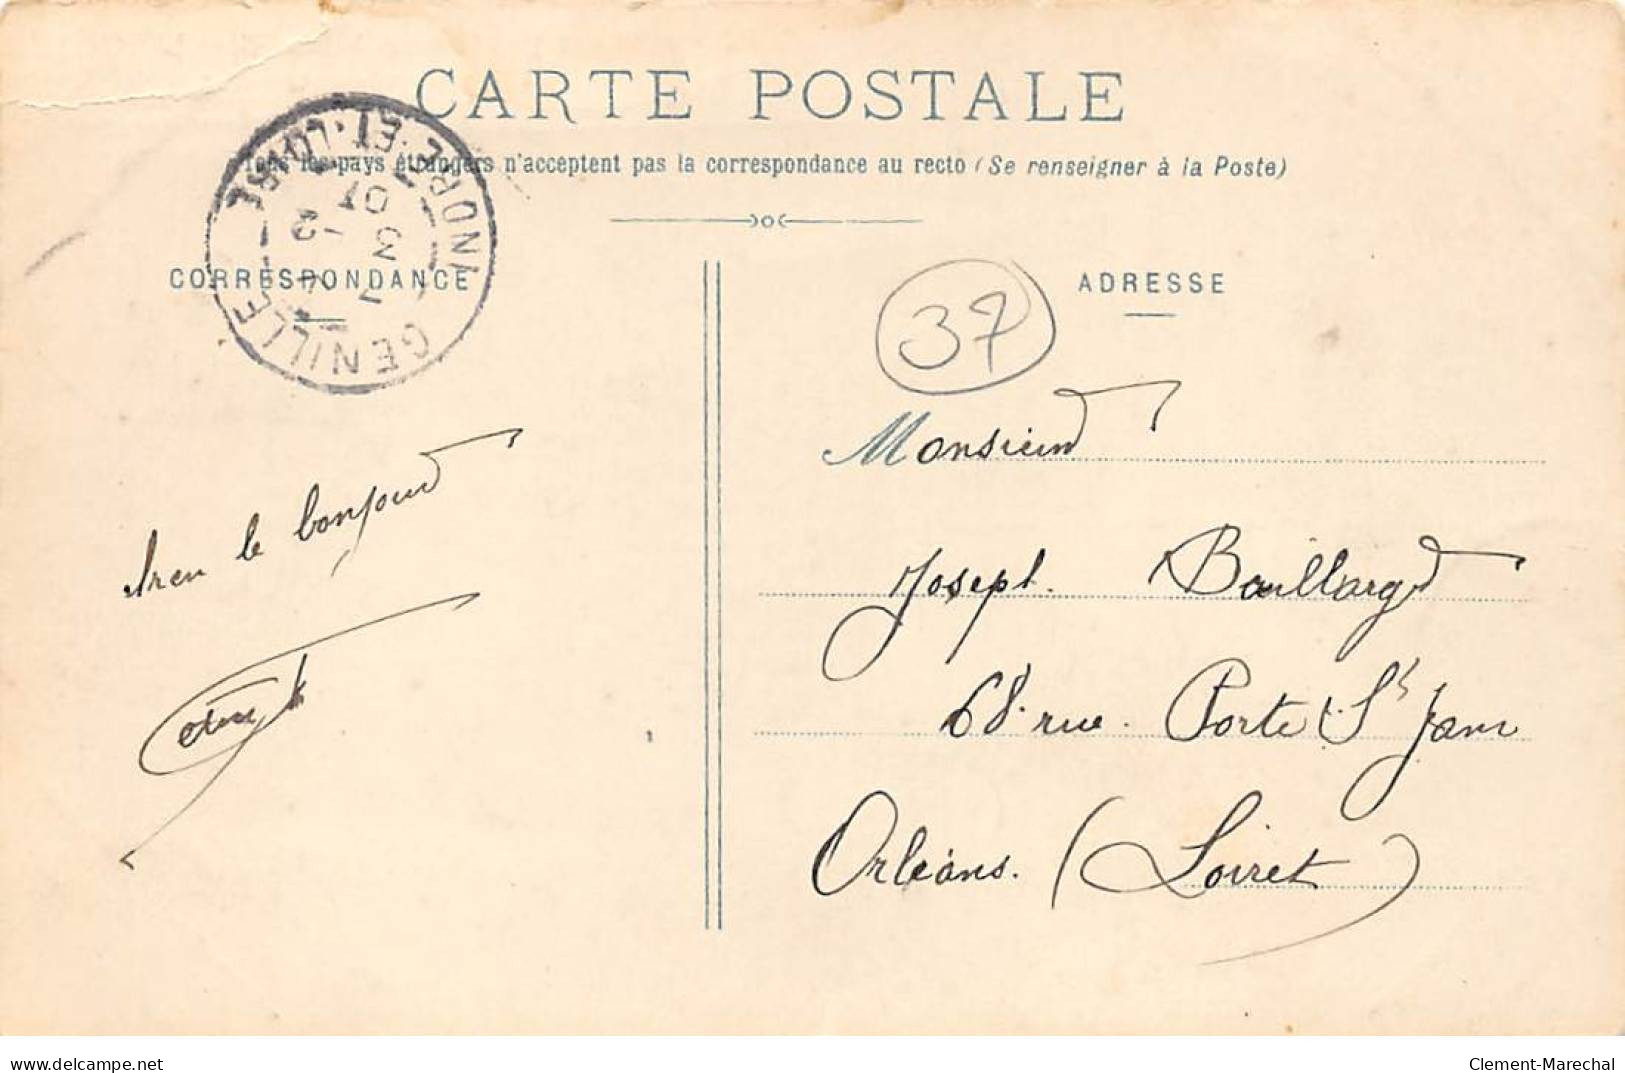 CARTE POSTALE
Tous les pays étrangers n'acceptent pas la correspondance au recto (Se renseigner à la Poste)
CORRESPONDANCE
ADRESSE
GENILLÉ
INDRE-ET-LOIRE
37
Monsieur
le bonjour
Joseph
68 rue Porte St Jean
Orléans. (Loiret)
delcampe.net
Clement-Marechal